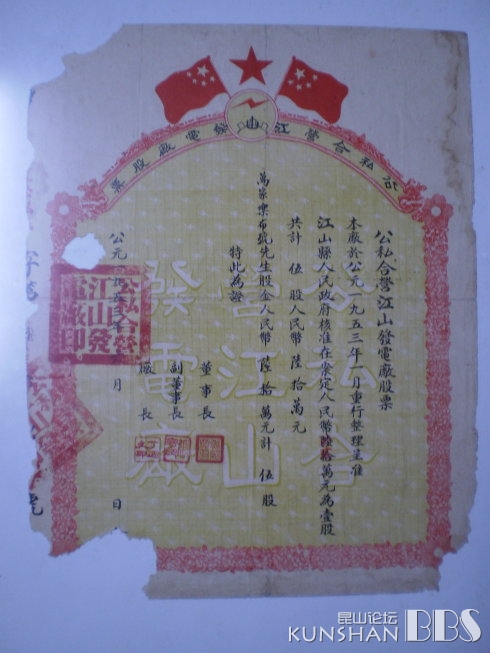 公私合營江山發電廠股票
公私合營江山發電廠股票
本廠於公元一九五三年一月重行整理呈准
江山縣人民政府核准在案定人民幣陸拾萬元為壹股
共計 伍 股人民幣 陸拾萬元
萬崇樂布號先生股金人民幣 陸拾萬元計 伍 股
特此為證
董事長
副董事長
廠長
公元 月 日
公私合營
江山發
電廠印
公私合
營江山
發電廠
昆山论坛
KUNSHAN BBS